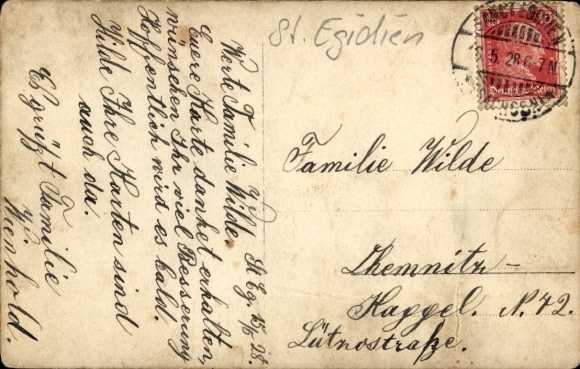 St. Egidien
St. Eg. 15/5 28.
Werte Familie Wilde.
Euere Karte dankend erhalten,
wünschen Ihr viel Besserung
Hoffentlich wird es bald.
Hilde Ihre Karten sind
auch da.
Es grüßt Familie
Wienhold.
Familie Wilde
Chemnitz-
Kappel. N. 42.
Lütnostraße.
5. 28. 6-7 N
Deutsches Reich